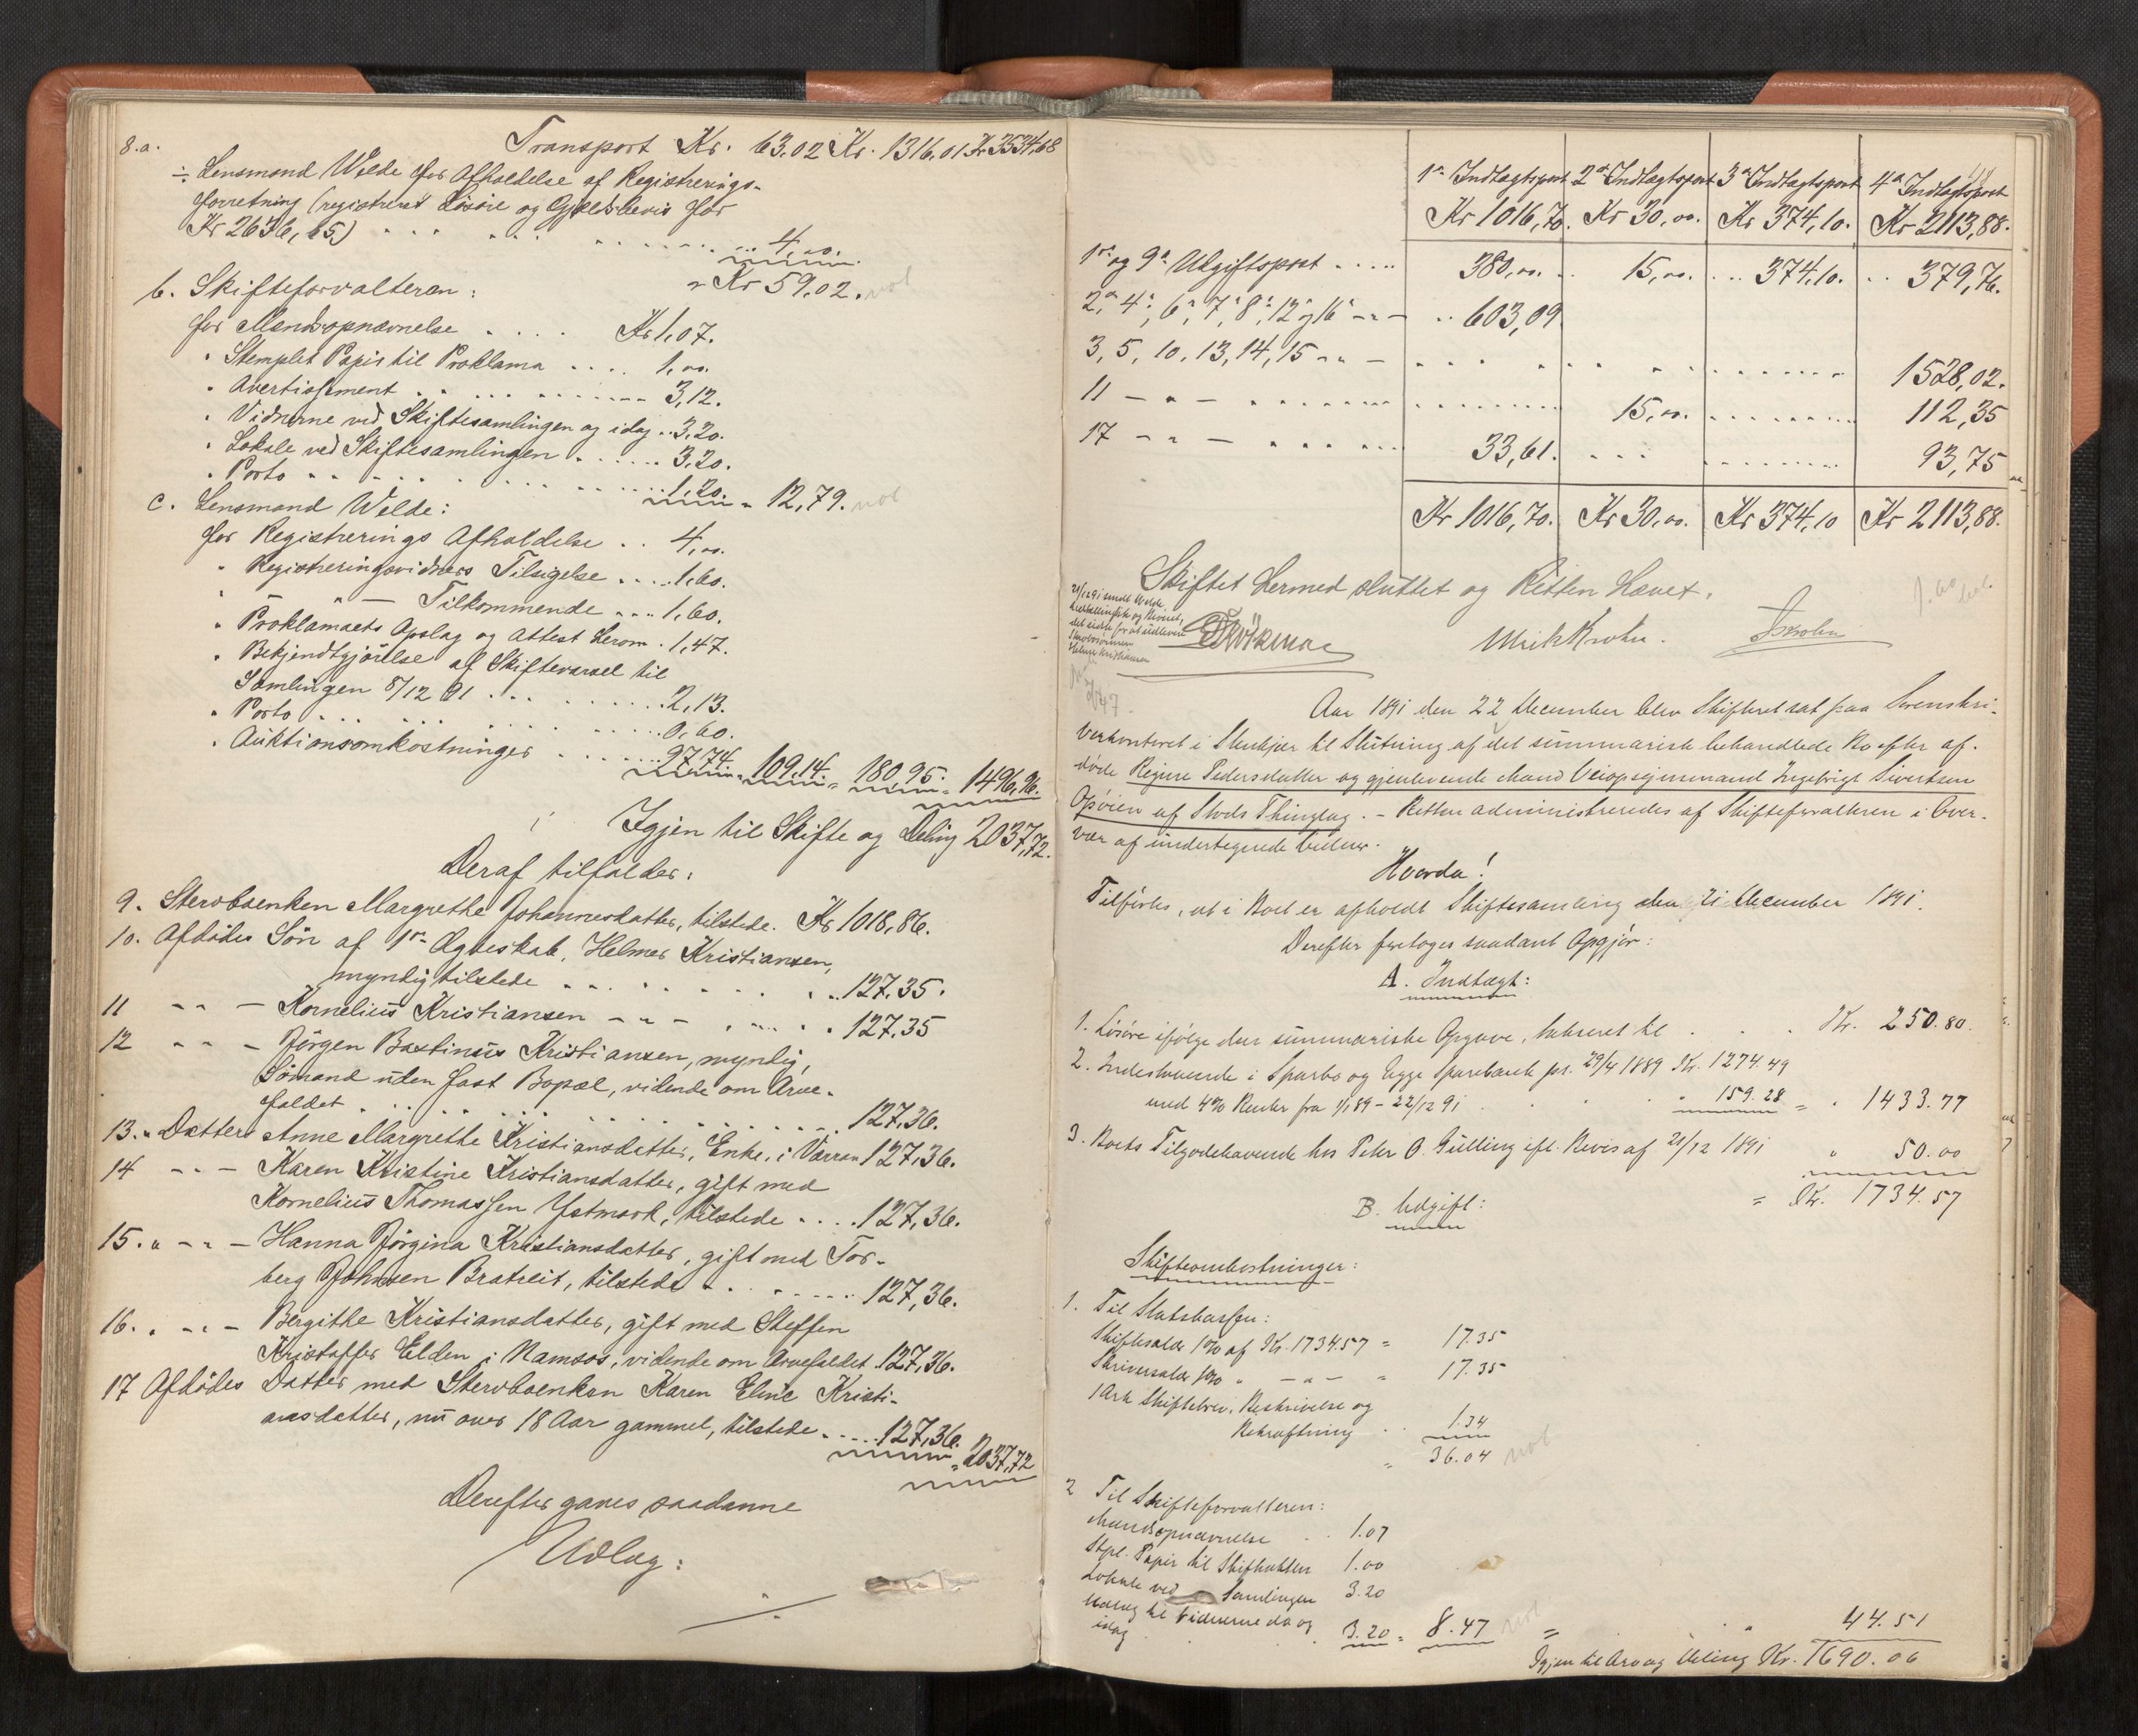 8.a. Transport Kr. 63,02 Kr. 1316,01 Kr 3534,68
÷ Lensmand Welde for Afholdelse af Registrerings-
forretning (registreret Løsøre og Gjeldsbevis for
Kr 2636,65) 4,00.
= Kr 59,02.
b. Skifteforvalteren:
for Mandsopnævnelse .... Kr 1,07.
" Stemplet Papir til Proklama .... 1,00.
" Avertissement 3,12.
" Vidnerne ved Skiftesamlingen og idag .. 3,20.
" Lokale ved Skiftesamlingen 3,20.
" Porto 1,20. = 12,79.
c. Lensmand Welde:
for Registrerings Afholdelse .. 4,00.
" Registreringsvidners Tilsigelse .... 1,60.
" " — Tilkommende ... 1,60.
" Proklamaets Opslag og Attest herom . 1,47.
" Bekjendtgjørelse af Skiftevarsel til
Samlingen 8/12 91 2,13.
" Porto 0,60.
" Auktionsomkostninger 97,74. = 109,14. = 180,95. = 1496,96.
Igjen til Skifte og Deling 2037,72.
Deraf tilfalder:
9. Stervboenken Margrethe Johannesdatter, tilstede. Kr 1018,86.
10. Afdødes Søn af 1ste Ægteskab, Helmer Kristiansen,
myndig tilstede 127,35.
11 " — Kornelius Kristiansen — " — 127,35
12 " — Jørgen Bastinus Kristiansen, myndig,
Sømand uden fast Bopæl, vidende om Arve-
faldet 127,36.
13. " Datter Anne Margrethe Kristiansdatter, Enke, i Varran 127,36.
14 " — Karen Kristine Kristiansdatter, gift med
Kornelius Thomassen Ystmark, tilstede .... 127,36.
15. " — Hanna Jørgina Kristiansdatter, gift med Tor-
berg Johnsen Bratreit, tilstede 127,36.
16. " — Bergithe Kristiansdatter, gift med Steffen
Kristoffer Elden i Namsos, vidende om Arvefaldet 127,36.
17 Afdødes Datter med Stervboenken Karen Eline Kristi-
ansdatter, nu over 18 Aar gammel, tilstede 127,36. = 2037,72
Derefter gaves saadanne
Udlæg:
1ste Indtægtspost 2den Indtægtspost 3die Indtægtspost 4de Indtægtspost
Kr 1016,70. Kr 30,00. Kr 374,10. Kr 2113,88.
1ste og 9de Udgiftspost ..... 380,00. 15,00. 374,10. 379,76.
2, 4, 6, 7, 8, 12 og 16 — " — 603,09
3, 5, 10, 13, 14, 15 — " — 1528,02.
11 — " — 15,00. 112,35
17 — " — 33,61. 93,75
Kr 1016,70. Kr 30,00. Kr 374,10 Kr 2113,88.
Skiftet hermed sluttet og Retten hævet.
Ulrik Krohn.
Aar 1891 den 22 December blev Skifteret sat paa Sorenskri-
verkontoret i Stenkjær til Slutning af det summarisk behandlede Bo efter af-
døde Regine Pedersdatter og gjenlevende Mand Veiopsynsmand Ingebrigt Sivertsen
Opøien af Stods Thinglag. – Retten administreredes af Skifteforvalteren i Over-
vær af undertegnede Vidner.
Hvorda!
Tilførtes, at i Boet er afholdt Skiftesamling den 21 December 1891.
Derefter foretoges saadant Opgjør:
A. Indtægt:
1. Løsøre ifølge den summariske Opgave, takseret til Kr. 250.80
2. Indestaaende i Sparbo og Egge Sparebank pr. 29/4 1889 Kr. 1274.49
med 4% Renter fra 1/1 89 – 22/12 91 " 159.28 = " 1433.77
3. Boets Tilgodehavende hos Peter O. Gulling efl. Bevis af 21/12 1891 " 50.00
= Kr. 1734.57
B. Udgift:
Skifteomkostninger:
1. Til Statskassen:
Skiftesalær 1% af Kr. 1734.57 = 17.35
Skriversalær 1% " — " — = 17.35
1 Ark Skiftebrev, Beskrivelse og
Bekræftning .. 1.34
= 36.04
2 Til Skifteforvalteren:
Mandsopnævnelse .. 1.07
Stpl. Papir til Skifteakten 1.00
Lokale ved Samlingen 3.20
Udlæg til Vidnerne da og
idag 3.20 = 8.47 = " 44.51
Igjen til Arv og Deling Kr. 1690.06